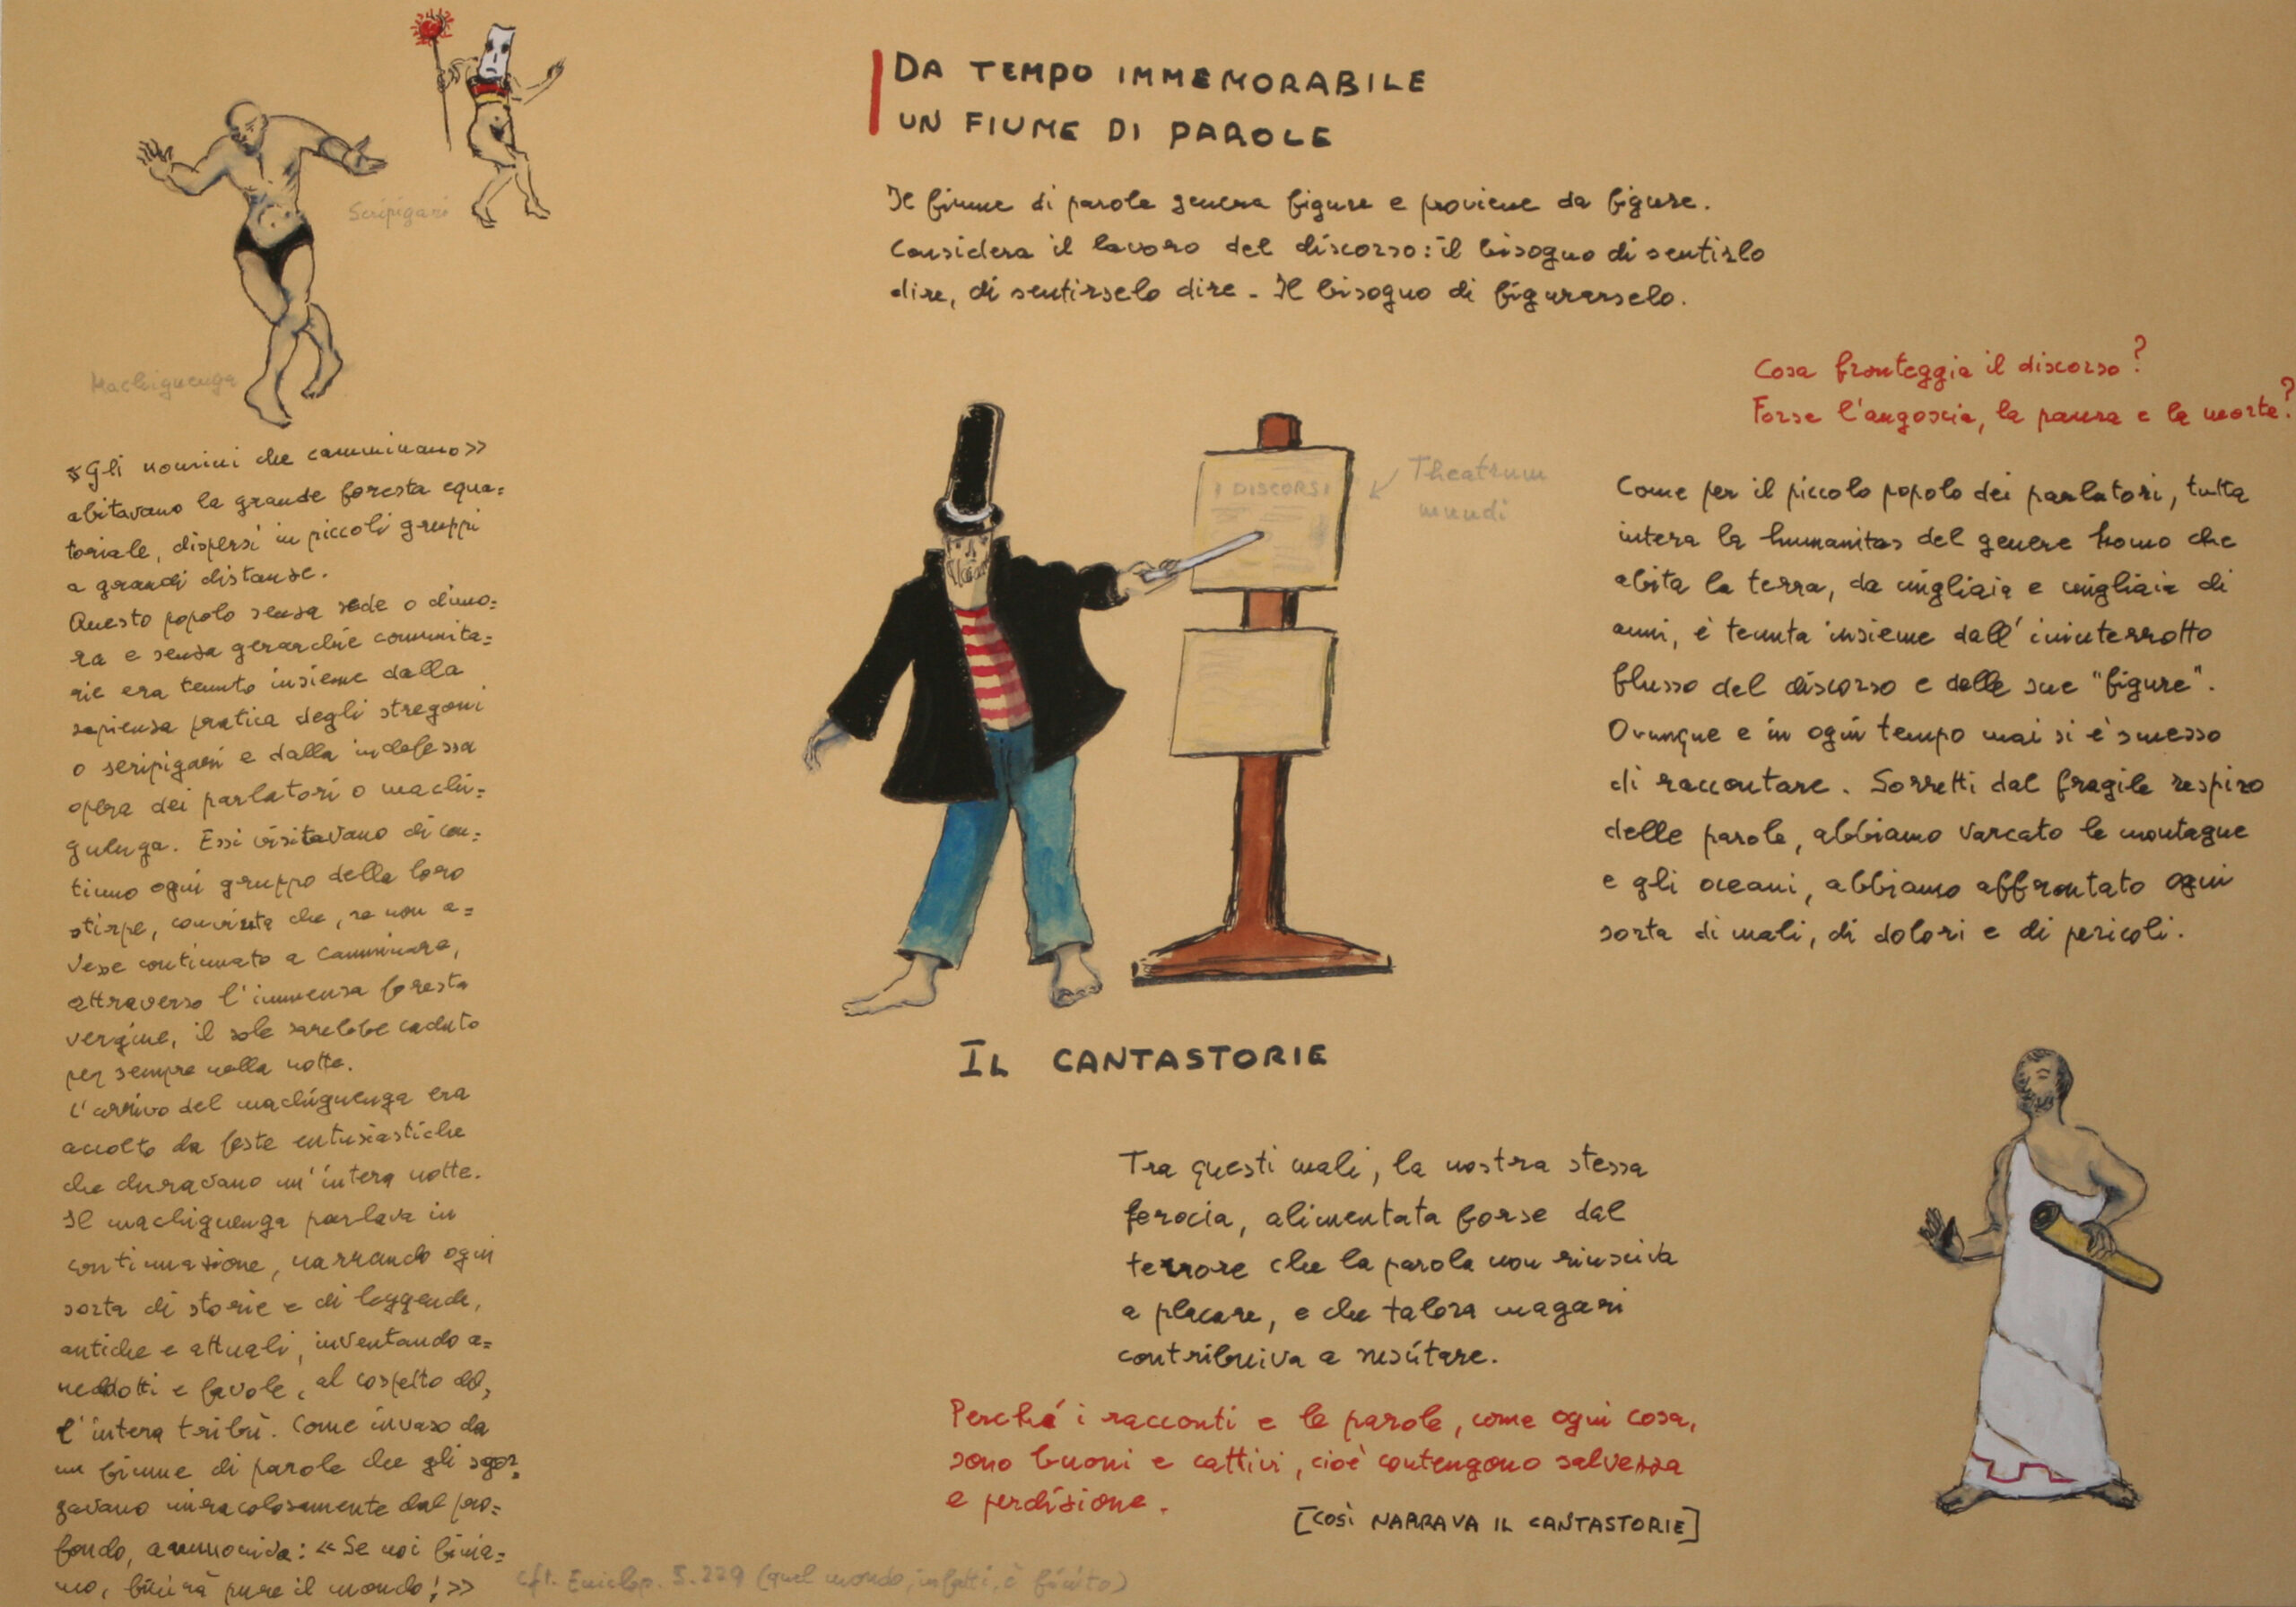 DA TEMPO IMMEMORABILE
UN FIUME DI PAROLE
Il fiume di parole genera figure e proviene da figure.
Considera il lavoro del discorso: il bisogno di sentirlo
dire, di sentirselo dire. Il bisogno di figurarselo.
Seripigari
Machiguenga
«Gli uomini che camminano»
abitavano la grande foresta equa=
toriale, dispersi in piccoli gruppi
a grandi distanze.
Questo popolo senza sede o dimo=
ra e senza gerarchie comunita=
rie era tenuto insieme dalla
sapienza pratica degli stregoni
o seripigari e dalla indefessa
opera dei parlatori o machi=
guenga. Essi visitavano di con=
tinuo ogni gruppo della loro
stirpe, convinta che, se non a=
vesse continuato a camminare,
attraverso l'immensa foresta
vergine, il sole sarebbe caduto
per sempre nella notte.
L'arrivo del machiguenga era
accolto da feste entusiastiche
che duravano un'intera notte.
Il machiguenga parlava in
continuazione, narrando ogni
sorta di storie e di leggende,
antiche e attuali, inventando a=
neddotti e favole, al cospetto del=
l'intera tribù. Come invaso da
un fiume di parole che gli sgor=
gavano miracolosamente dal pro=
fondo, ammoniva: «Se noi finia=
mo, finirà pure il mondo!»
cfr. Enciclop. S. 229 (quel mondo, infatti, è finito)
I DISCORSI
Theatrum
mundi
IL CANTASTORIE
Cosa fronteggia il discorso?
Forse l'angoscia, la paura e la morte?
Come per il piccolo popolo dei parlatori, tutta
intera la humanitas del genere homo che
abita la terra, da migliaia e migliaia di
anni, è tenuta insieme dall'ininterrotto
flusso del discorso e delle sue "figure".
Ovunque e in ogni tempo mai si è smesso
di raccontare. Sorretti dal fragile respiro
delle parole, abbiamo varcato le montagne
e gli oceani, abbiamo affrontato ogni
sorta di mali, di dolori e di pericoli.
Tra questi mali, la nostra stessa
ferocia, alimentata forse dal
terrore che la parola non riusciva
a placare, e che talora magari
contribuiva a suscitare.
Perché i racconti e le parole, come ogni cosa,
sono buoni e cattivi, cioè contengono salvezza
e perdizione.
[COSÌ NARRAVA IL CANTASTORIE]